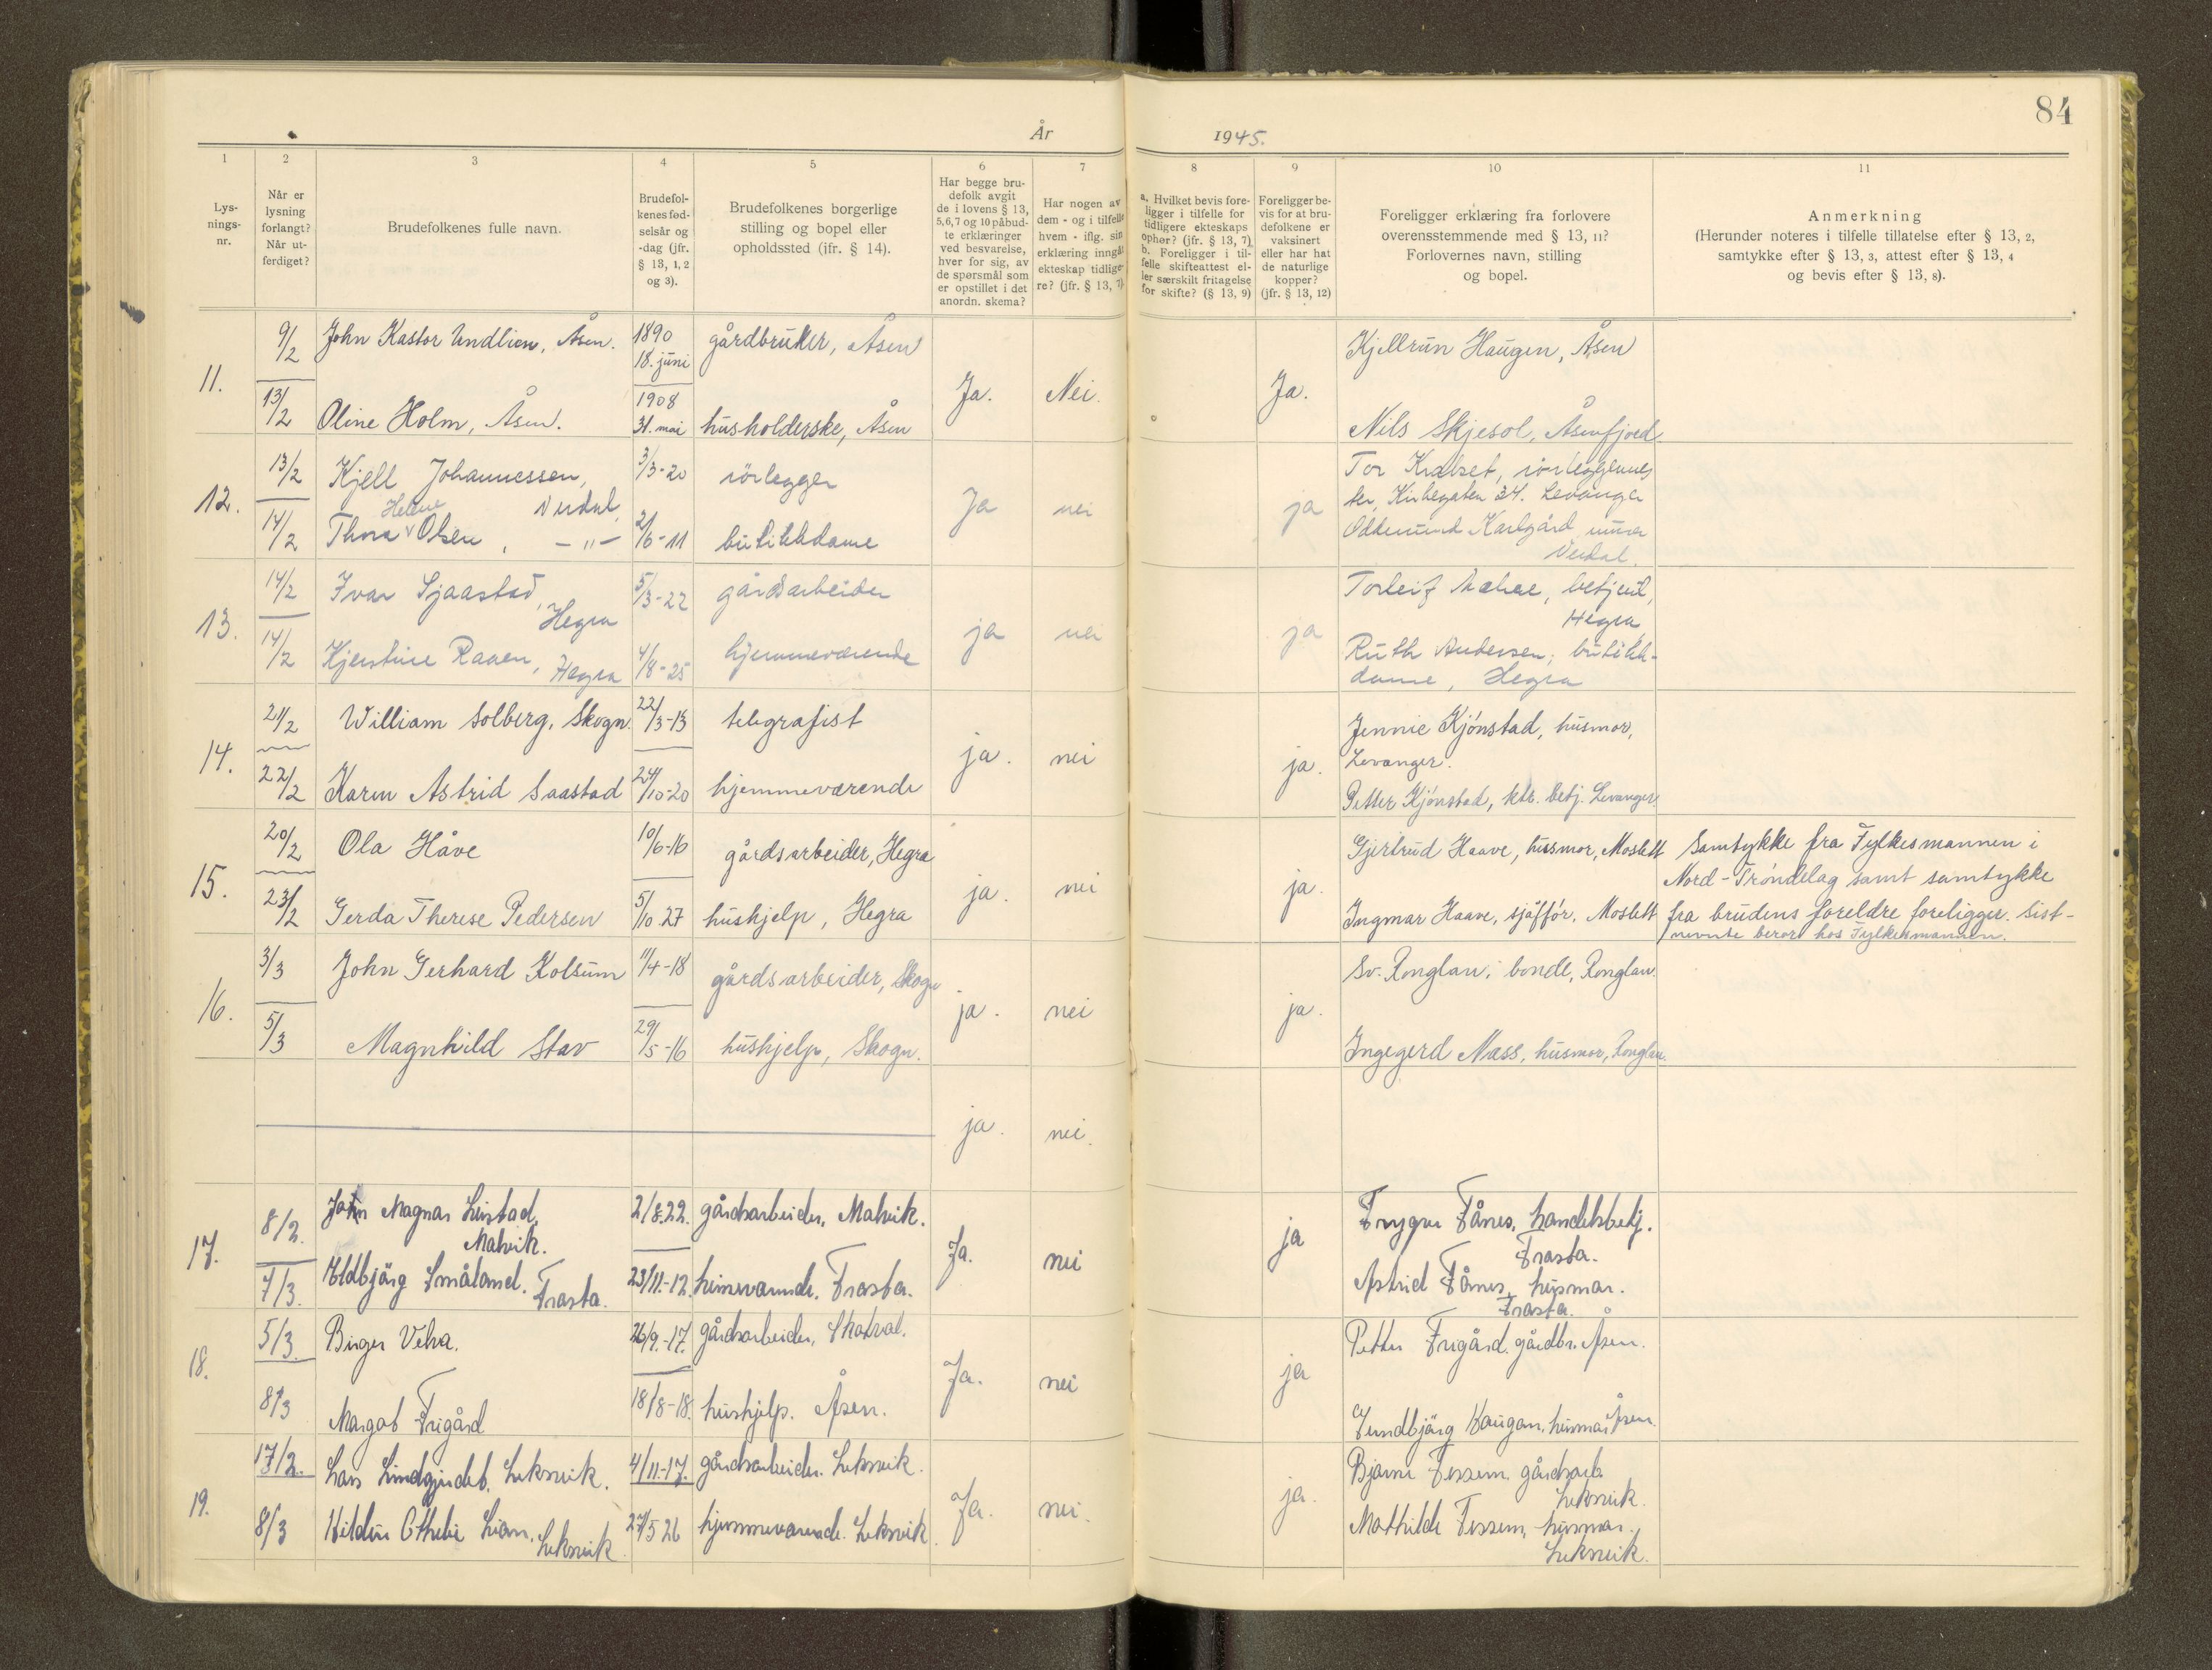 84
År 1945.
1 2 3 4 5 6 7 8 9 10 11
Lys-
nings-
nr.
Når er
lysning
forlangt?
Når ut-
ferdiget?
Brudefolkenes fulle navn.
Brudefol-
kenes fød-
selsår og
-dag (jfr.
§ 13, 1, 2
og 3).
Brudefolkenes borgerlige
stilling og bopel eller
opholdssted (jfr. § 14).
Har begge bru-
defolk avgit
de i lovens § 13,
5,6,7 og 10 påbud-
te erklæringer
ved besvarelse,
hver for sig, av
de spørsmål som
er opstillet i det
anordn. skema?
Har nogen av
dem - og i tilfelle
hvem - iflg. sin
erklæring inngåt
ekteskap tidlige-
re? (jfr. § 13, 7)
a. Hvilket bevis fore-
ligger i tilfelle for
tidligere ekteskaps
ophør? (jfr. § 13, 7)
b. Foreligger i til-
felle skifteattest el-
ler særskilt fritagelse
for skifte? (§ 13, 9)
Foreligger be-
vis for at bru-
defolkene er
vaksinert
eller har hat
de naturlige
kopper?
(jfr. § 13, 12)
Foreligger erklæring fra forlovere
overensstemmende med § 13, 11?
Forlovernes navn, stilling
og bopel.
Anmerkning
(Herunder noteres i tilfelle tillatelse efter § 13, 2,
samtykke efter § 13, 3, attest efter § 13, 4
og bevis efter § 13, 8).
11.
9/2 John Kastor Undlien, Åsen. 1890 18. juni gårdbruker, Åsen
13/2 Oline Holm, Åsen. 1908 31. mai husholderske, Åsen
Ja. Nei. Ja.
Kjellrun Haugen, Åsen
Nils Skjesol, Åsenfjord
12.
13/2 Kjell Johannessen, Verdal, 3/3-20 rörlegger
14/2 Thora Helene Olsen, -"- 2/6-11 butikkdame
Ja nei ja
Tor
ter, Kirkegaten 34. Levanger
Oddemund Karlgård, murer
Verdal.
13.
14/2 Ivar Sjaastad, Hegra 5/3-22 gårdsarbeider
14/2 Kjerstine Raaen, Hegra 4/8-25 hjemmeværende
ja nei ja
Torleif betjent,
Hegra
Ruth Andersen, butikk-
dame, Hegra
14.
21/2 William Solberg, Skogn. 22/3-13 telegrafist
22/2 Karen Astrid Saastad 24/10-20 hjemmeværende
ja. nei ja.
Jennie Kjönstad, husmor,
Levanger.
Petter Kjönstad, ktr. betj. Levanger
15.
20/2 Ola Håve 10/6-16 gårdsarbeider, Hegra
23/2 Gerda Therese Pedersen 5/10 27 hushjelp, Hegra
ja. nei ja.
Gjertrud Haave, husmor, Moslett
Ingmar Haave, sjåffór, Moslett
Samtykke fra Fylkesmannen i
Nord-Tröndelag samt samtykke
fra brudens foreldre foreligger. Sist-
nevnte beror hos Fylkesmannen.
16.
3/3 John Gerhard Kolsum 11/4-18 gårdsarbeider, Skogn
5/3 Magnhild Stav 29/5-16 hushjelp, Skogn.
ja. nei ja.
Sv. Ronglan, bonde, Ronglan.
Ingegerd Næss, husmor, Ronglan.
ja. nei.
17.
8/2. John Magnar Leistad, Malvik. 2/8.22. gårdsarbeider, Malvik.
7/3. Oldbjörg Småland. Frosta. 23/11.-12. heimeværende. Frosta.
Ja. nei ja
Trygve Fånes, handelsbetj.
Frosta.
Astrid Fånes, husmor.
Frosta.
18.
5/3. Birger Velva. 26/9.-17. gårdsarbeider, Skatval.
8/3 Margot Trigård 18/8-18. hushjelp. Åsen.
Ja. nei ja
Petter Trigård. gårdbr. Åsen.
Gundbjörg Haugan, husmor Åsen.
19.
17/2. Lars Leksvik. 4/11.-17. gårdsarbeider. Leksvik.
8/3 Hildur Othelie Lian, Leksvik. 27/5 26 hjemmeværende. Leksvik
Ja. nei. ja.
Bjarne Tessem. gårdsarb.
Leksvik.
Mathilde Tessem, husmor.
Leksvik.